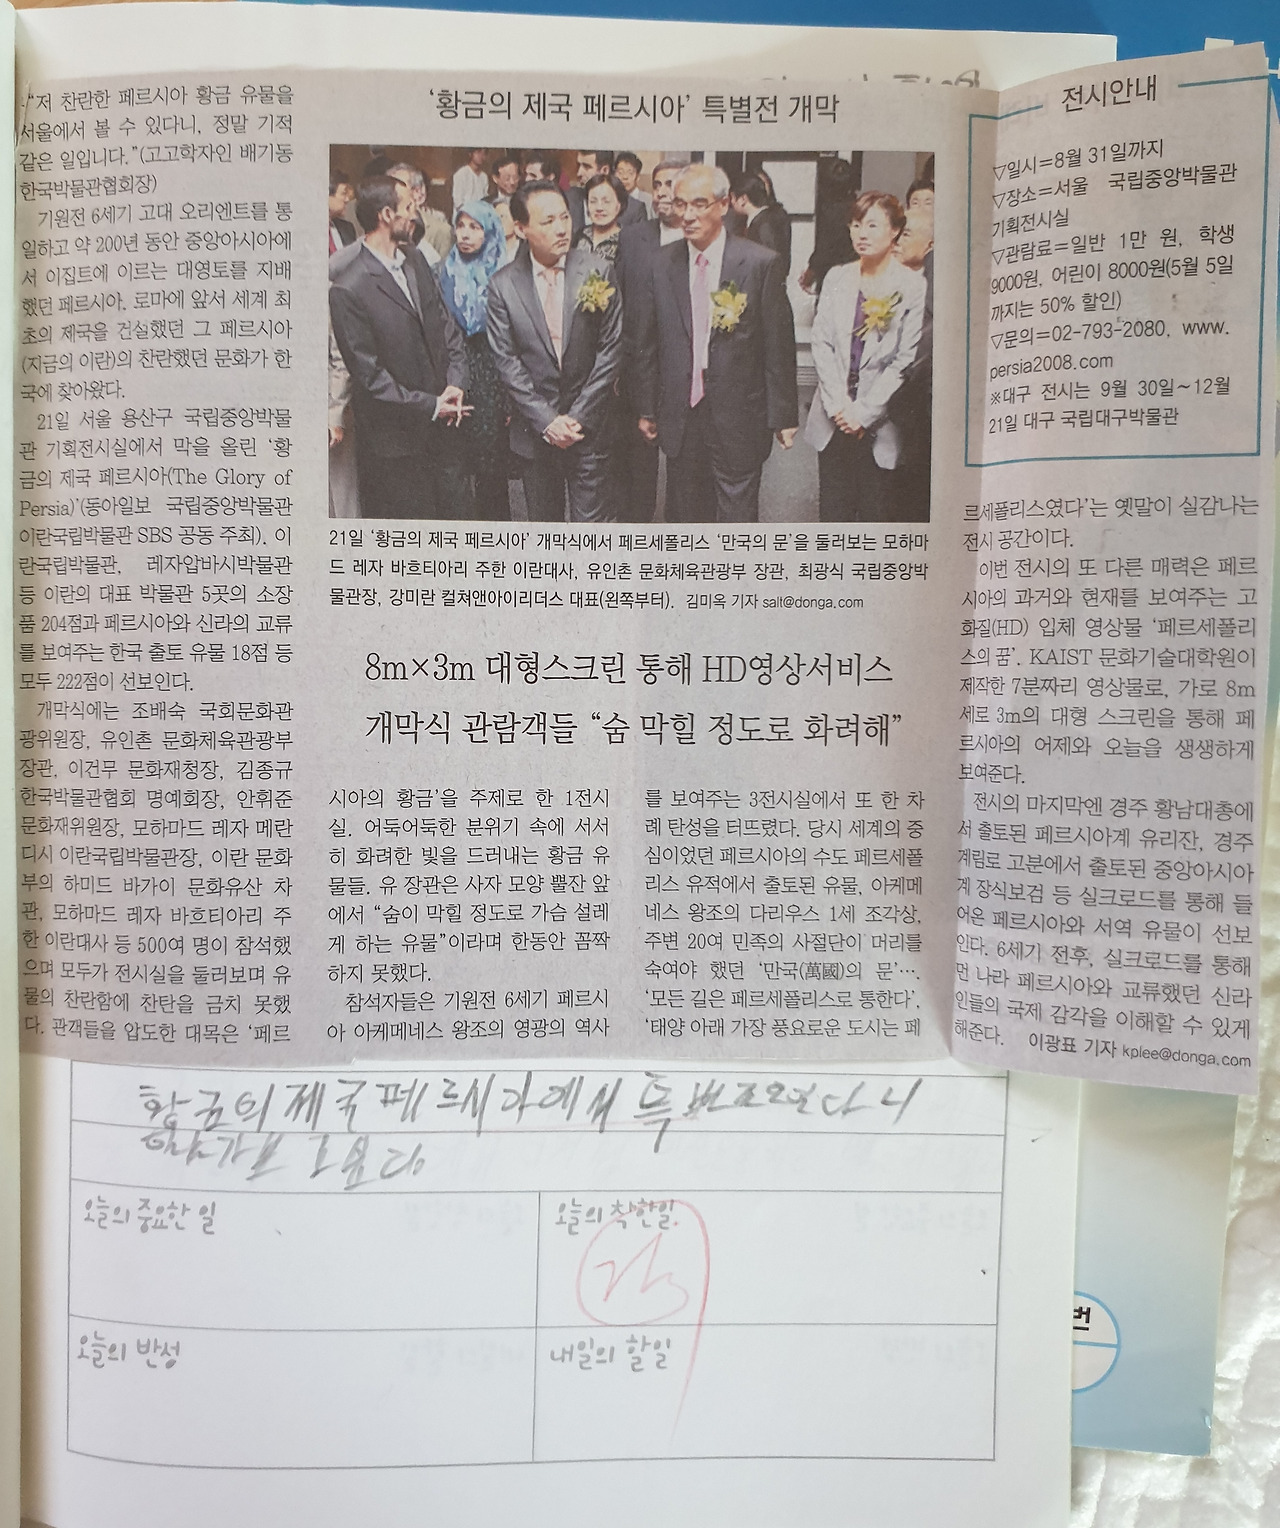 '황금의 제국 페르시아' 특별전 개막
“저 찬란한 페르시아 황금 유물을
서울에서 볼 수 있다니, 정말 기적
같은 일입니다.”(고고학자인 배기동
한국박물관협회장)
기원전 6세기 고대 오리엔트를 통
일하고 약 200년 동안 중앙아시아에
서 이집트에 이르는 대영토를 지배
했던 페르시아. 로마에 앞서 세계 최
초의 제국을 건설했던 그 페르시아
(지금의 이란)의 찬란했던 문화가 한
국에 찾아왔다.
21일 서울 용산구 국립중앙박물
관 기획전시실에서 막을 올린 '황
금의 제국 페르시아(The Glory of
Persia)'(동아일보 국립중앙박물관
이란국립박물관 SBS 공동 주최). 이
란국립박물관, 레자압바시박물관
등 이란의 대표 박물관 5곳의 소장
품 204점과 페르시아와 신라의 교류
를 보여주는 한국 출토 유물 18점 등
모두 222점이 선보인다.
개막식에는 조배숙 국회문화관
광위원장, 유인촌 문화체육관광부
장관, 이건무 문화재청장, 김종규
한국박물관협회 명예회장, 안휘준
문화재위원장, 모하마드 레자 메란
디시 이란국립박물관장, 이란 문화
부의 하미드 바가이 문화유산 차
관, 모하마드 레자 바흐티아리 주
한 이란대사 등 500여 명이 참석했
으며 모두가 전시실을 둘러보며 유
물의 찬란함에 찬탄을 금치 못했
다. 관객들을 압도한 대목은 '페르
21일 '황금의 제국 페르시아' 개막식에서 페르세폴리스 '만국의 문'을 둘러보는 모하마
드 레자 바흐티아리 주한 이란대사, 유인촌 문화체육관광부 장관, 최광식 국립중앙박
물관장, 강미란 컬쳐앤아이리더스 대표(왼쪽부터). 김미옥 기자 salt@donga.com
8m×3m 대형스크린 통해 HD영상서비스
개막식 관람객들 “숨 막힐 정도로 화려해”
시아의 황금'을 주제로 한 1전시
실. 어둑어둑한 분위기 속에 서서
히 화려한 빛을 드러내는 황금 유
물들. 유 장관은 사자 모양 뿔잔 앞
에서 “숨이 막힐 정도로 가슴 설레
게 하는 유물”이라며 한동안 꼼짝
하지 못했다.
참석자들은 기원전 6세기 페르시
아 아케메네스 왕조의 영광의 역사
를 보여주는 3전시실에서 또 한 차
례 탄성을 터뜨렸다. 당시 세계의 중
심이었던 페르시아의 수도 페르세폴
리스 유적에서 출토된 유물, 아케메
네스 왕조의 다리우스 1세 조각상,
주변 20여 민족의 사절단이 머리를
숙여야 했던 '만국(萬國)의 문'….
'모든 길은 페르세폴리스로 통한다'.
'태양 아래 가장 풍요로운 도시는 페
전시안내
▽일시=8월 31일까지
▽장소=서울 국립중앙박물관
기획전시실
▽관람료=일반 1만 원, 학생
9000원, 어린이 8000원(5월 5일
까지는 50% 할인)
▽문의=02-793-2080, www.
persia2008.com
※대구 전시는 9월 30일~12월
21일 대구 국립대구박물관
르세폴리스였다'는 옛말이 실감나는
전시 공간이다.
이번 전시의 또 다른 매력은 페르
시아의 과거와 현재를 보여주는 고
화질(HD) 입체 영상물 '페르세폴리
스의 꿈'. KAIST 문화기술대학원이
제작한 7분짜리 영상물로, 가로 8m
세로 3m의 대형 스크린을 통해 페
르시아의 어제와 오늘을 생생하게
보여준다.
전시의 마지막엔 경주 황남대총에
서 출토된 페르시아계 유리잔, 경주
계림로 고분에서 출토된 중앙아시아
계 장식보검 등 실크로드를 통해 들
어온 페르시아와 서역 유물이 선보
인다. 6세기 전후, 실크로드를 통해
먼 나라 페르시아와 교류했던 신라
인들의 국제 감각을 이해할 수 있게
해준다. 이광표 기자 kplee@donga.com
황금의 제국 페르시아에서
오늘의 중요한 일
오늘의 착한일
오늘의 반성
내일의 할일
번